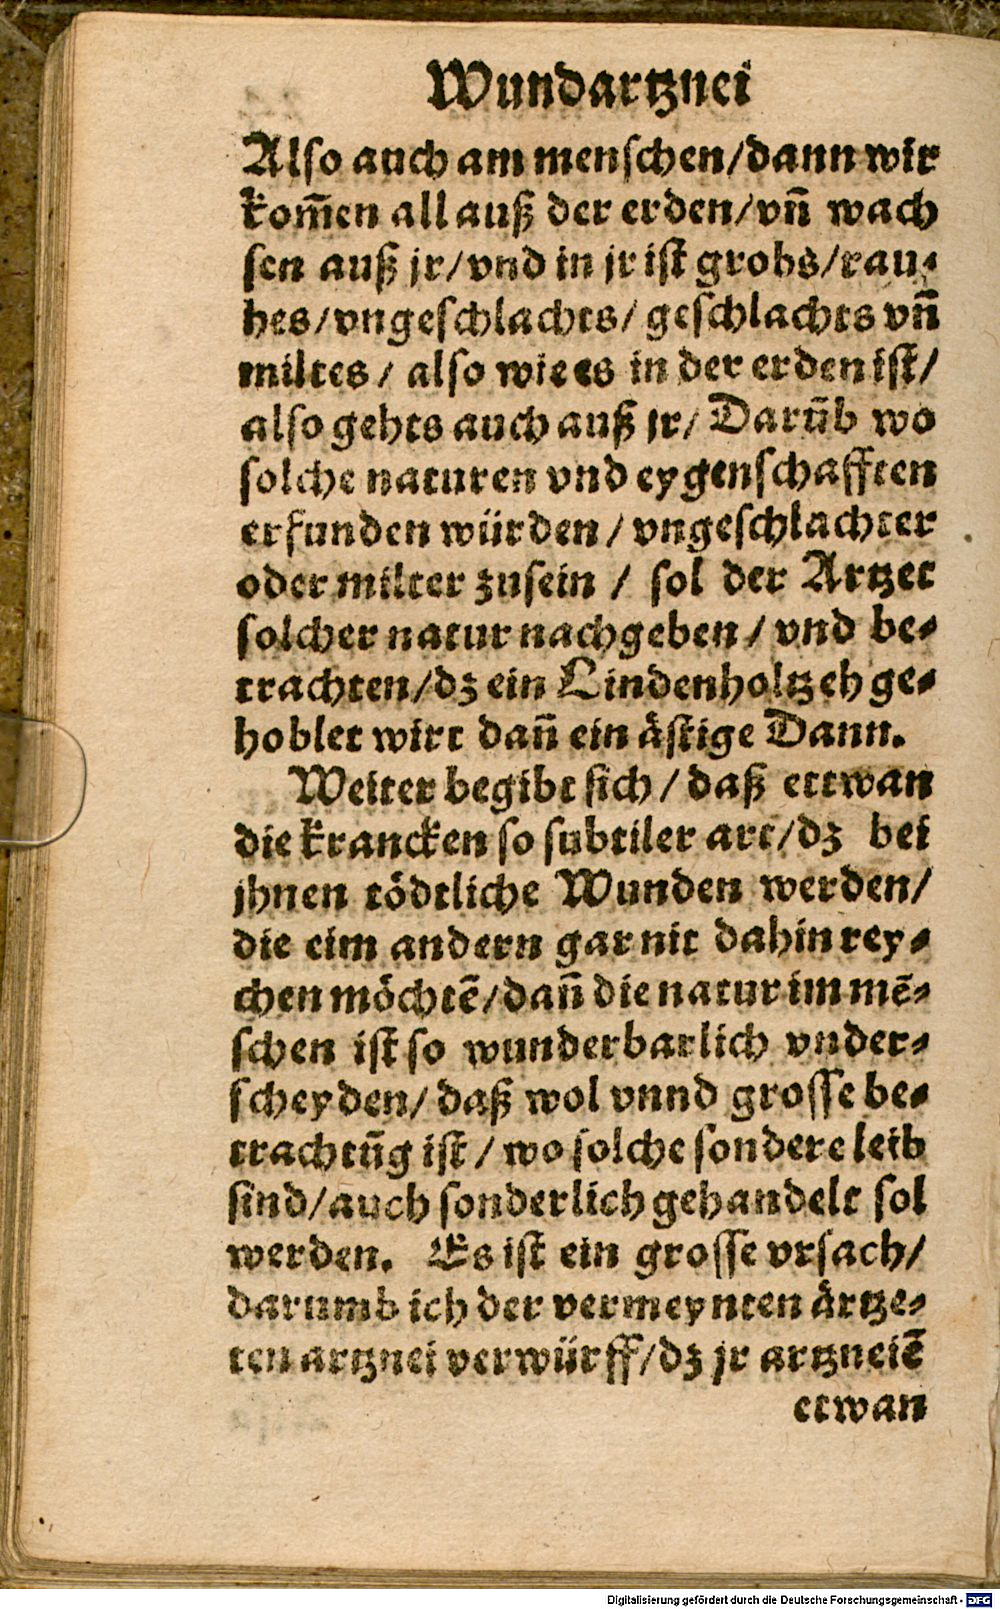 Wundartznei
Also auch am menschen/dann wir
kom̃en all auß der erden/vñ wach
sen auß jr/vnd in jr ist grobs/rau⸗
hes/vngeschlachts/geschlachts vñ
miltes/ also wie es in der erden ist/
also gehts auch auß jr/ Darũb wo
solche naturen vnd eygenschafften
erfunden würden/vngeschlachter
oder milter zusein / sol der Artzet
solcher natur nachgeben/vnd be⸗
trachten/dz ein Lindenholtz eh ge⸗
hoblet wirt dañ ein ästige Dann.
Weiter begibt sich/daß ettwan
die krancken so subtiler art/dz bei
jhnen tödtliche Wunden werden/
die eim andern gar nit dahin rey⸗
chen möchtẽ/dañ die natur im mẽ⸗
schen ist so wunderbarlich vnder⸗
scheyden/daß wol vnnd grosse be⸗
trachtũg ist/wo solche sondere leib
sind/auch sonderlich gehandelt sol
werden. Es ist ein grosse vrsach/
darumb ich der vermeynten ärtze⸗
ten artznei verwürff/dz jr artzneiẽ
etwan
Digitalisierung gefördert durch die Deutsche Forschungsgemeinschaft - DFG